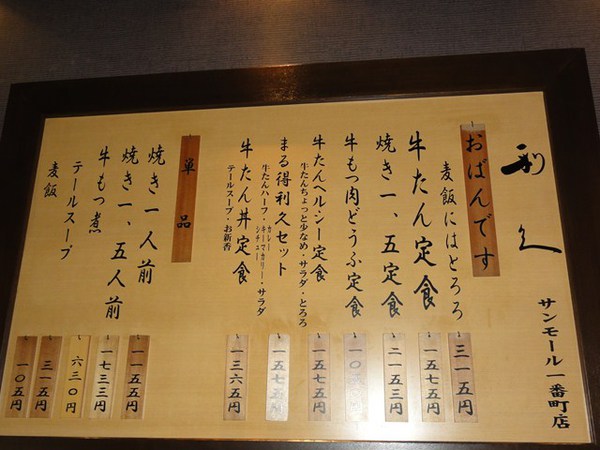 利久
サンモール一番町店
おばんです
麦飯にはとろろ
三一五円
牛たん定食
一五七五円
焼き一、五定食
二一五三円
牛もつ肉どうふ定食
一〇五〇円
牛たんヘルシー定食
牛たんちょっと少なめ・サラダ・とろろ
一五七五円
まる得利久セット
牛たんハーフ・カレー・キーマカリー・シチュー・サラダ
一五七五円
牛たん丼定食
テールスープ・お新香
一三六五円
單品
焼き一人前
一一五五円
焼き一、五人前
一七三三円
牛もつ煮
六三〇円
テールスープ
三一五円
麦飯
一〇五円